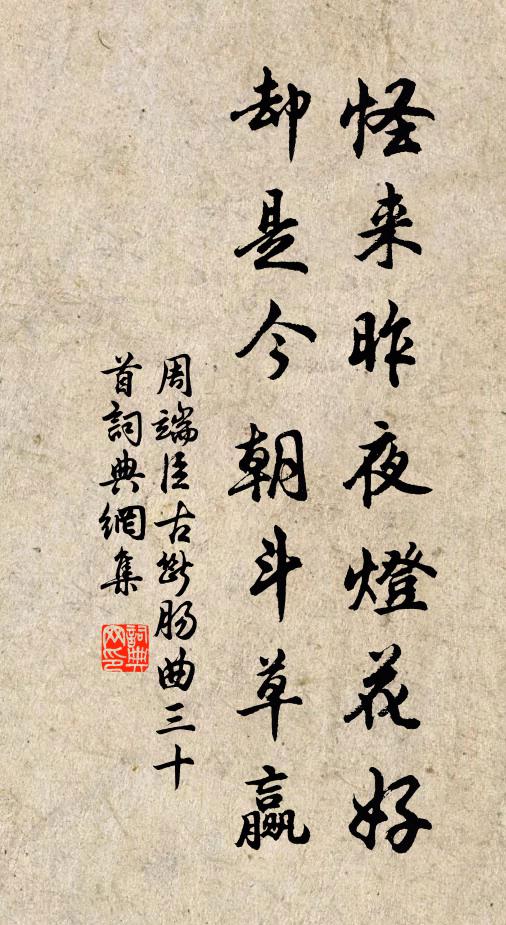 怪来昨夜燈花好
却是今朝斗草贏
周端臣古斷肠曲三十
首詞典網集
詞典
网印